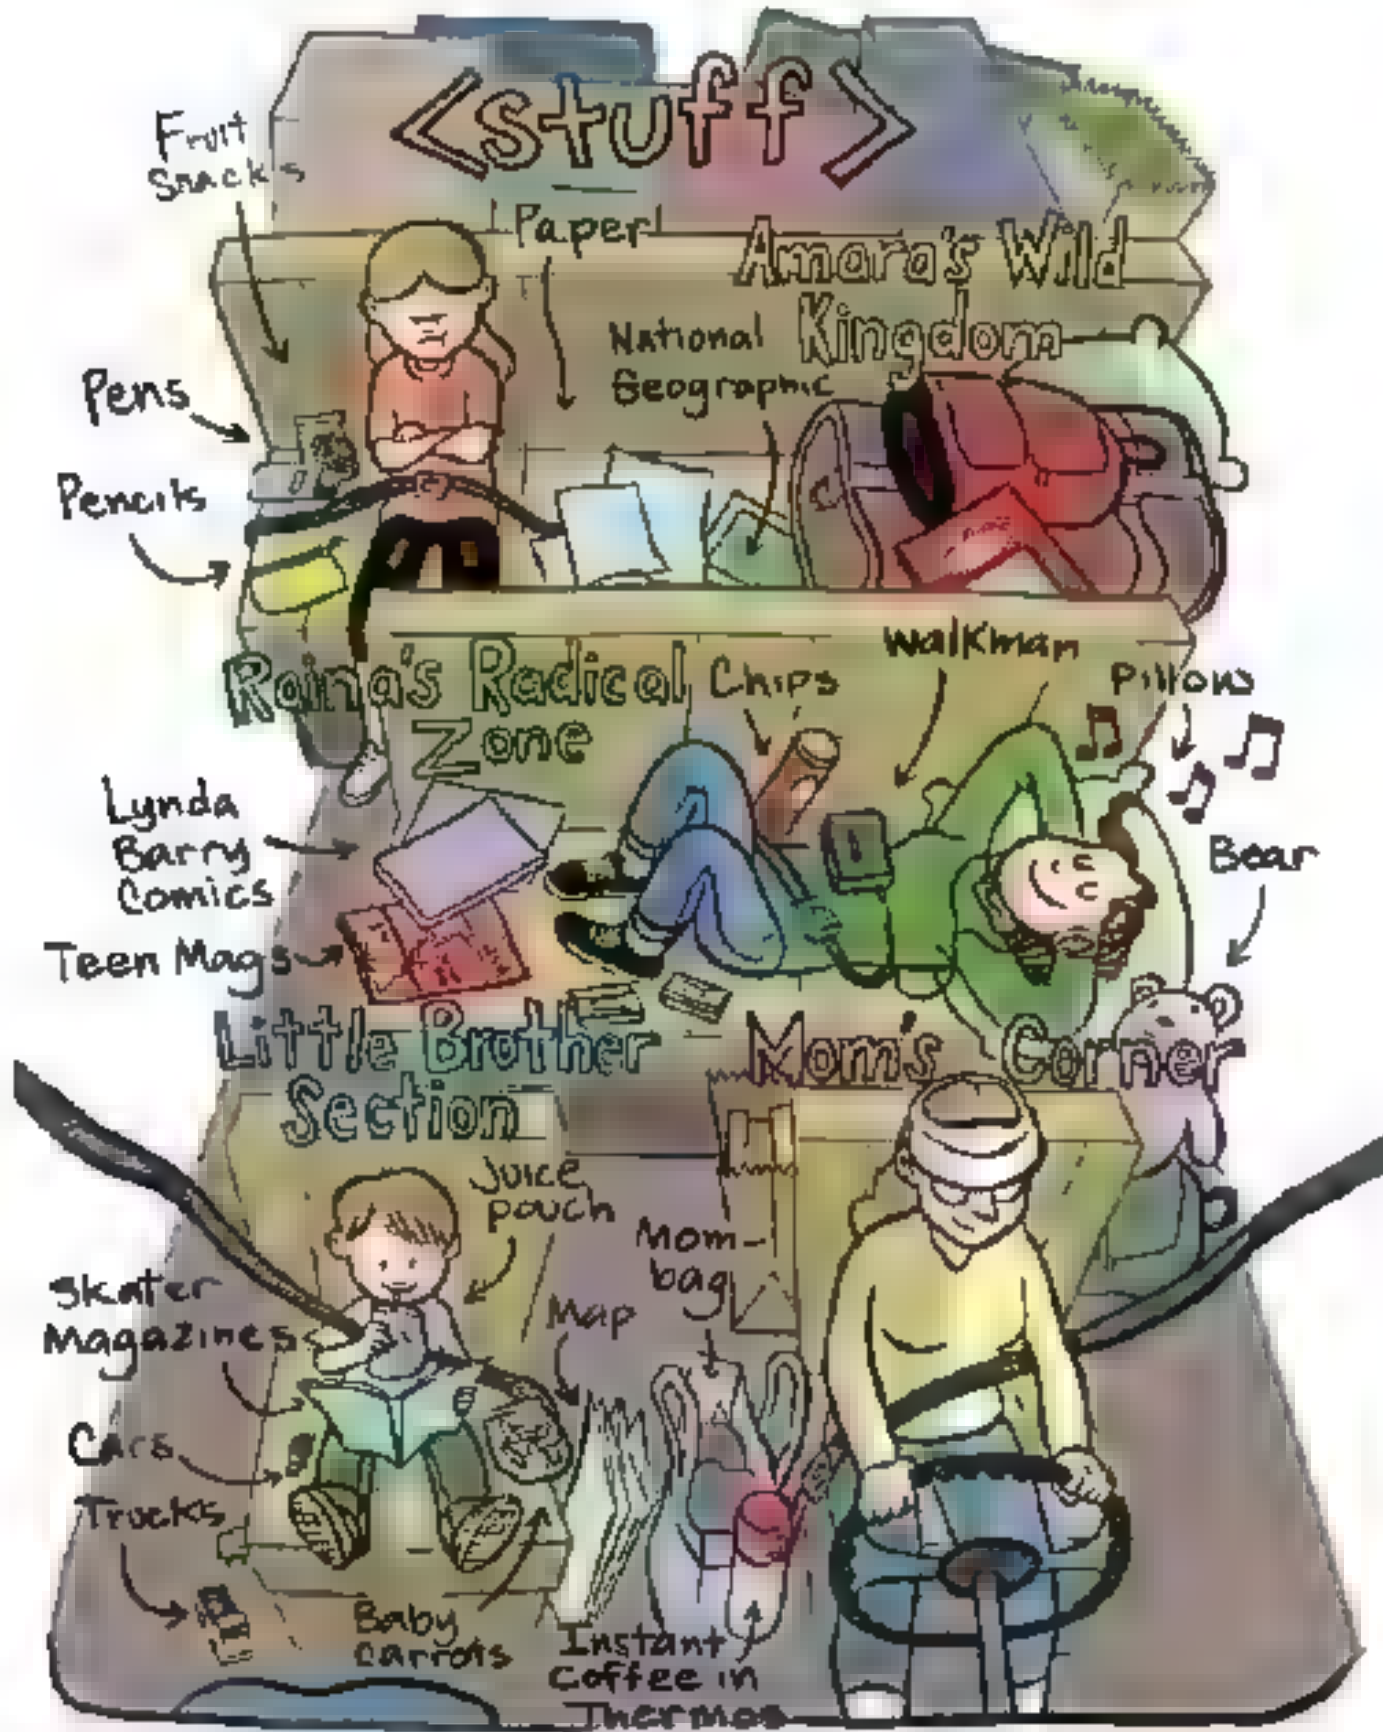 <stuff>
Fruit
Snacks
Paper
Amara's Wild
Kingdom
National
Geographic
Pens
Pencils
Walkman
Raina's Radical
Zone
Chips
Pillow
Lynda
Barry
Comics
Bear
Teen Mags
Little Brother
Section
Mom's Corner
Juice
pouch
Mom-
bag
Skater
Magazines
Map
Cars
Trucks
Baby
Carrots
Instant
Coffee in
Thermos